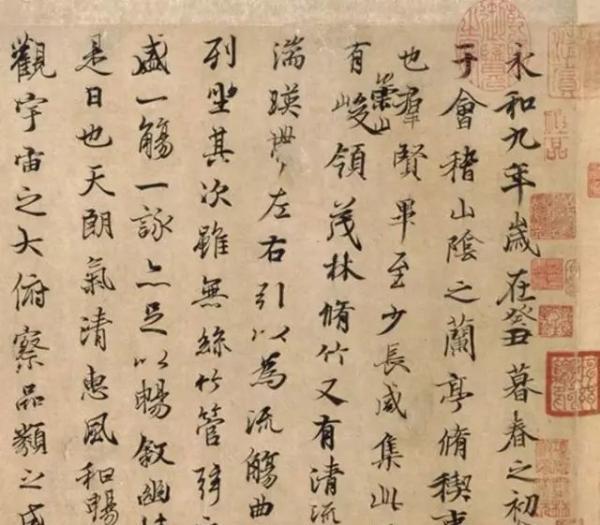 永和九年歲在癸丑暮春之初
于會稽山陰之蘭亭脩稧事
也羣賢畢至少長咸集此
有崇山峻領茂林脩竹又有清流
湍暎帶左右引以為流觴曲
列坐其次雖無絲竹管弦之
盛一觴一詠亦足以暢叙幽情
是日也天朗氣清惠風和暢
觀宇宙之大俯察品類之盛